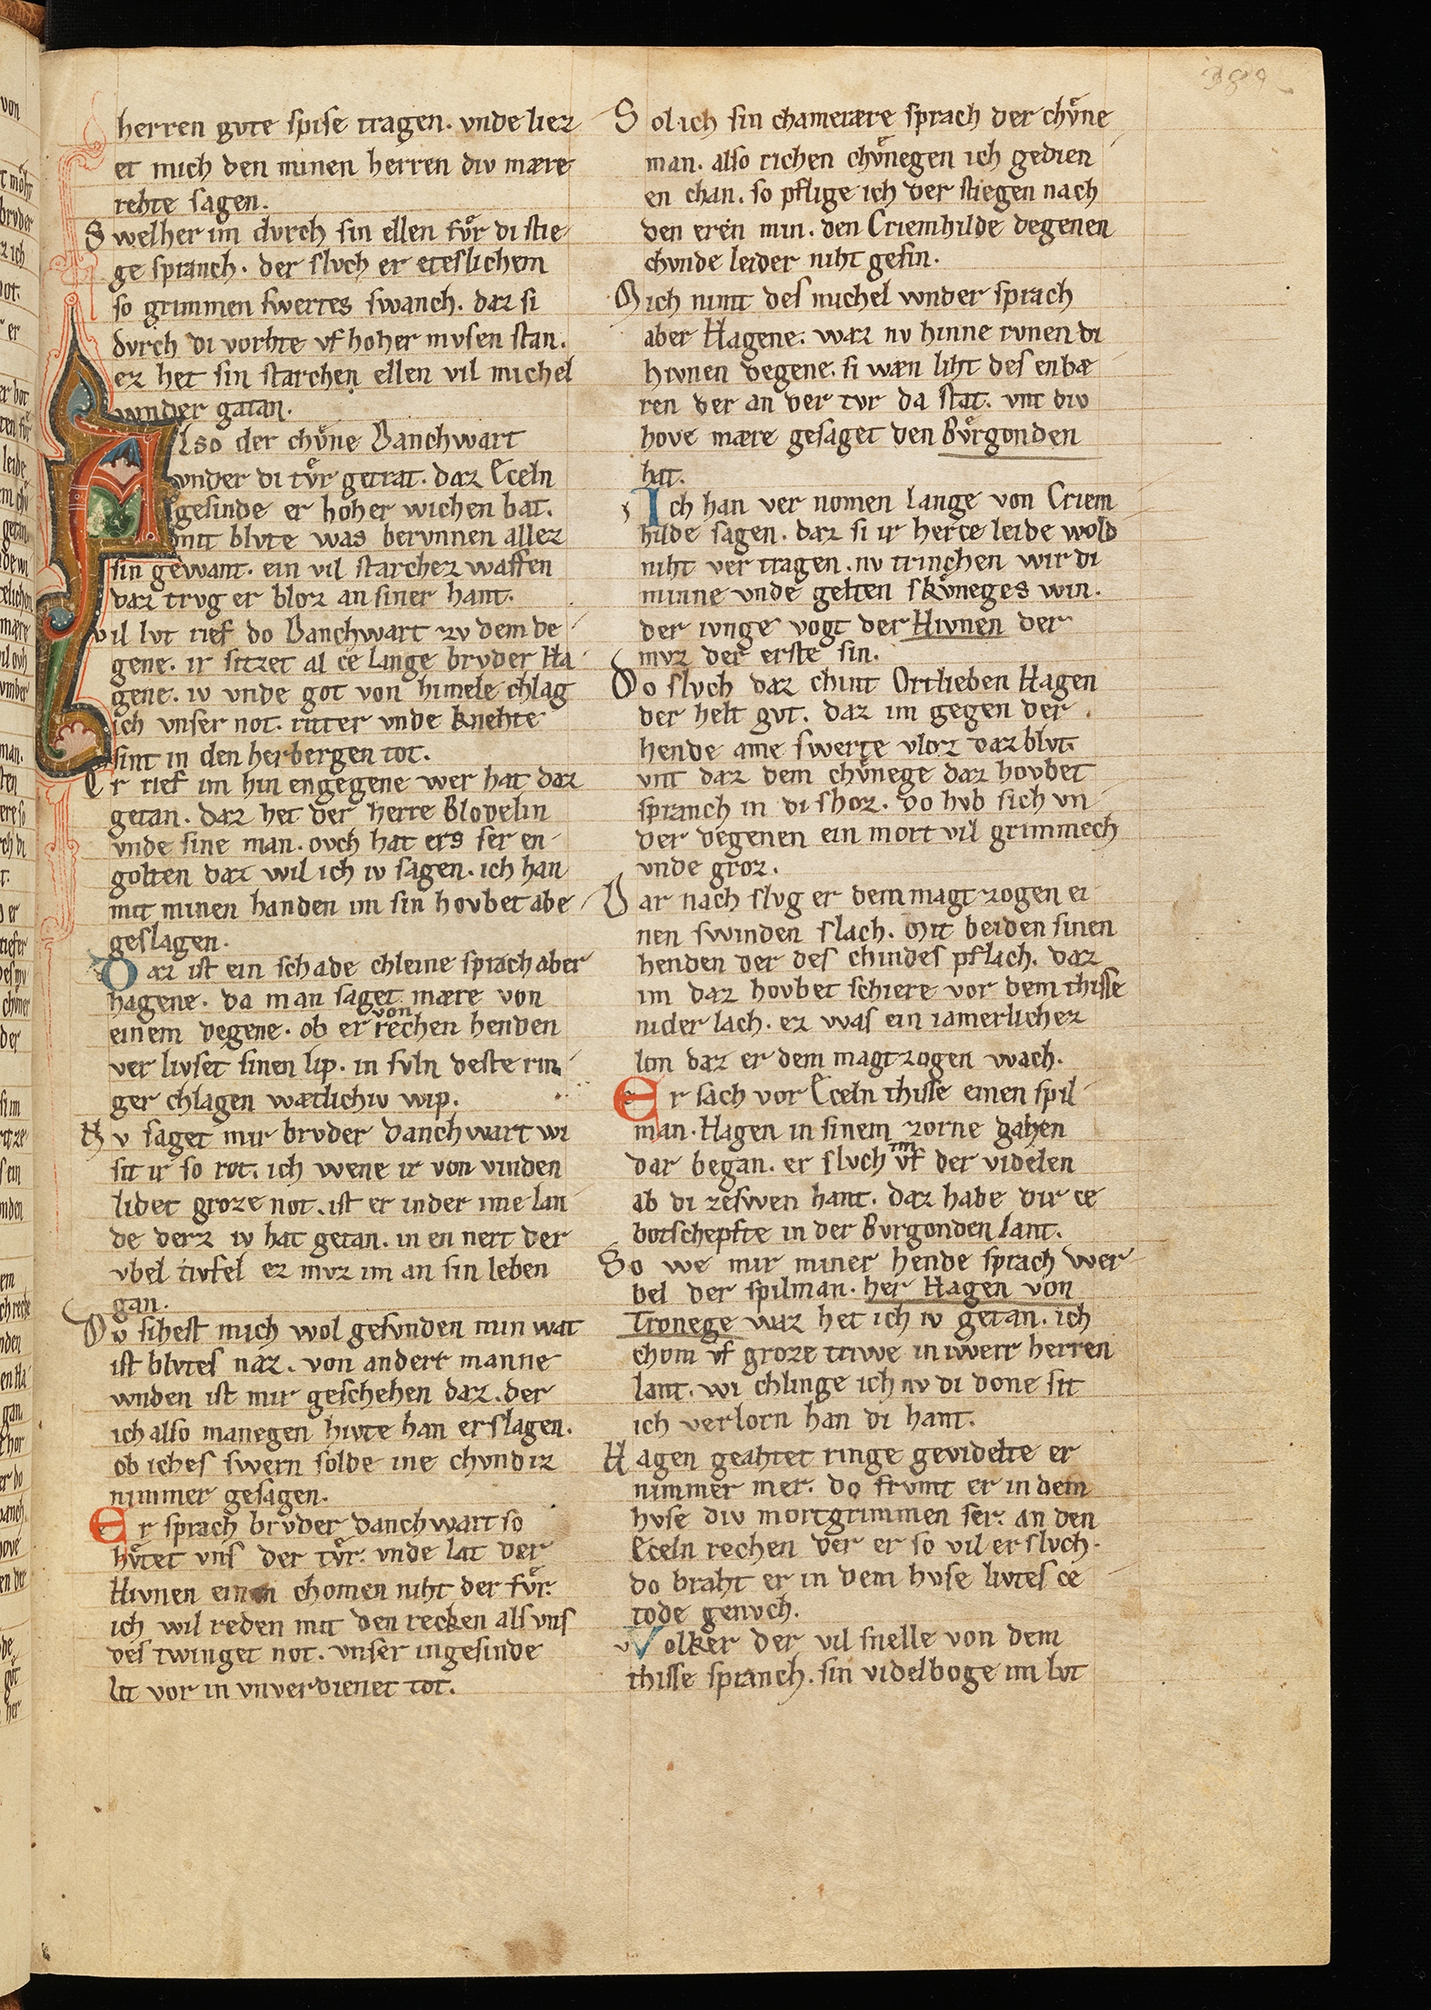 herren gvte spise tragen. vnde liez
et mich den minen herren div mære
rehte sagen.
Swelher im dvrch sin ellen fv̊r di stie
ge spranch. der slvch er eteslichem
so grimmen swertes swanch. daz si
dvrch di vorhte vf hoher mvsen stan.
ez het sin starchen ellen vil michel
wnder getan.
Also der chv̊ne Danchwart
vnder di tv̊r getrat. daz Eceln
gesinde er hoher wichen bat.
mit blvte was bervnnen allez
sin gewant. ein vil starchez waffen
daz trvg er bloz an siner hant.
vil lvt rief do Danchwart zv dem de
gene. ir sitzet al ce lange brvder Ha
gene. iv vnde got von himele chlag
ich vnser not. ritter vnde knehte
sint in den herbergen tot.
Er rief im hin engegene wer hat daz
getan. daz het der herre Blodelin
vnde sine man. ovch hat ers ser en
golten daz wil ich iv sagen. ich han
mit minen handen im sin hovbet abe
geslagen.
Daz ist ein schade chleine sprach aber
hagene. da man saget mære von
einem degene. ob er von rechen henden
ver livset sinen lip. in svln deste rin
ger chlagen wætlichiv wip.
Nv saget mir brvder Danchwart wi
sit ir so rot. ich wene ir von vvnden
lidet groze not. ist er inder ime lan
de derz iv hat getan. in en nert der
vbel tivfel ez mvz im an sin leben
gan.
Dv sihest mich wol gesvnden min wat
ist blvtes naz. von anderr manne
wnden ist mir geschehen daz. der
ich also manegen hivte han erslagen.
ob iches swern solde ine chvnd iz
nimmer gesagen.
Er sprach brvder Danchwart so
hv̊tet vns der tv̊r. vnde lat der
Hivnen einen chomen niht der fv̊r.
ich wil reden mit den recken als vns
des twinget not. vnser ingesinde
lit vor in vnverdienet tot.
Sol ich sin chamerære sprach der chv̊ne
man. also richen chv̊negen ich gedien
en chan. so pflige ich der stiegen nach
den eren min. den Criemhilde degenen
chvnde leider niht gesin.
Mich nimt des michel wnder sprach
aber Hagene. waz nv hinne rvnen di
hivnen degene. si wæn liht des enbæ
ren der an der tvr da stat. vnt div
hove mære gesaget den Bv̊rgonden
hat.
Ich han ver nomen lange von Criem
hilde sagen. daz si ir herce leide wold
niht ver tragen. nv trinchen wir di
minne vnde gelten skv̊neges win.
der ivnge vogt der Hivnen der
mvz der erste sin.
Do slvch daz chint Ortlieben Hagen
der helt gvt. daz im gegen der
hende ame swerte vloz daz blvt.
vnt daz dem chv̊nege daz hovbet
spranch in di shoz. do hvb sich vn
der degenen ein mort vil grimmech
vnde groz.
Dar nach slvg er dem magtzogen ei
nen swinden slach. mit beiden sinen
henden der des chindes pflach. daz
im daz hovbet schiere vor dem thisse
nider lach. ez was ein iamerlichez
lon daz er dem magtzogen wach.
Er sach vor Eceln thisse einen spil
man. Hagen in sinem zorne gahen
dar began. er slvch im vf der videlen
ab di zeswen hant. daz habe dir ce
botschepfte in der Bvrgonden lant.
So we mir miner hende sprach Wer
bel der spilman. her Hagen von
Tronege waz het ich iv getan. ich
chom vf groze triwe in iwerr herren
lant. wi chlinge ich nv di done sit
ich verlorn han di hant.
Hagen geahtet ringe gevidelte er
nimmer mer. do frvmt er in dem
hvse div mortgrimmen ser. an den
Eceln rechen der er so vil er slvch.
do braht er in dem hvse livtes ce
tode genvch.
Volker der vil snelle von dem
thisse spranch. sin videlboge im lvt